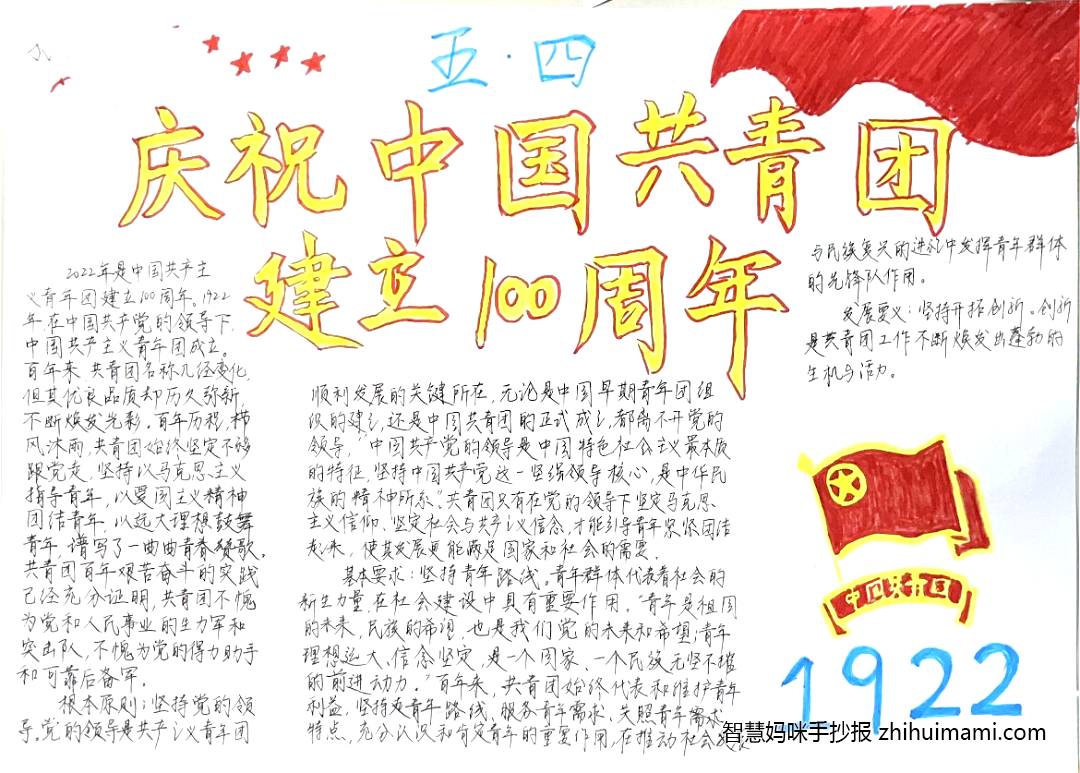 五·四
庆祝中国共青团
建立100周年
2022年是中国共产主
义青年团建立100周年。1922
年,在中国共产党的领导下,
中国共产主义青年团成立。
百年来,共青团名称几经变化,
但其优良品质却历久弥新,
不断焕发光彩。百年历程,栉
风沐雨,共青团始终坚定不移
跟党走,坚持以马克思主义
指导青年,以爱国主义精神
团结青年,以远大理想鼓舞
青年,谱写了一曲曲青春赞歌。
共青团百年艰苦奋斗的实践
已经充分证明,共青团不愧
为党和人民事业的生力军和
突击队,不愧为党的得力助手
和可靠后备军。
根本原则:坚持党的领
导。党的领导是共产主义青年团
顺利发展的关键所在,无论是中国早期青年团组
织的建立,还是中国共青团的正式成立,都离不开党的
领导,"中国共产党的领导是中国特色社会主义最本质
的特征,坚持中国共产党这一坚强领导核心,是中华民
族的精神所系。"共青团只有在党的领导下坚定马克思
主义信仰、坚定社会与共产主义信念,才能引导青年紧紧团结
起来,使其发展更能满足国家和社会的需要。
基本要求:坚持青年路线。青年群体代表着社会的
新生力量,在社会建设中具有重要作用。"青年是祖国
的未来,民族的希望,也是我们党的未来和希望;青年
理想远大、信念坚定,是一个国家、一个民族无坚不摧
的前进动力。"百年来,共青团始终代表和维护青年
利益,坚持走青年路线,服务青年需求、关照青年需求
特点,充分认识和有效青年的重要作用,在推动社会
与民族复兴的进程中发挥青年群体
的先锋队作用。
发展要义:坚持开拓创新。创新
是共青团工作不断焕发出蓬勃的
生机与活力。
中国共青团
1922
智慧妈咪手抄报 zhihuimami.com